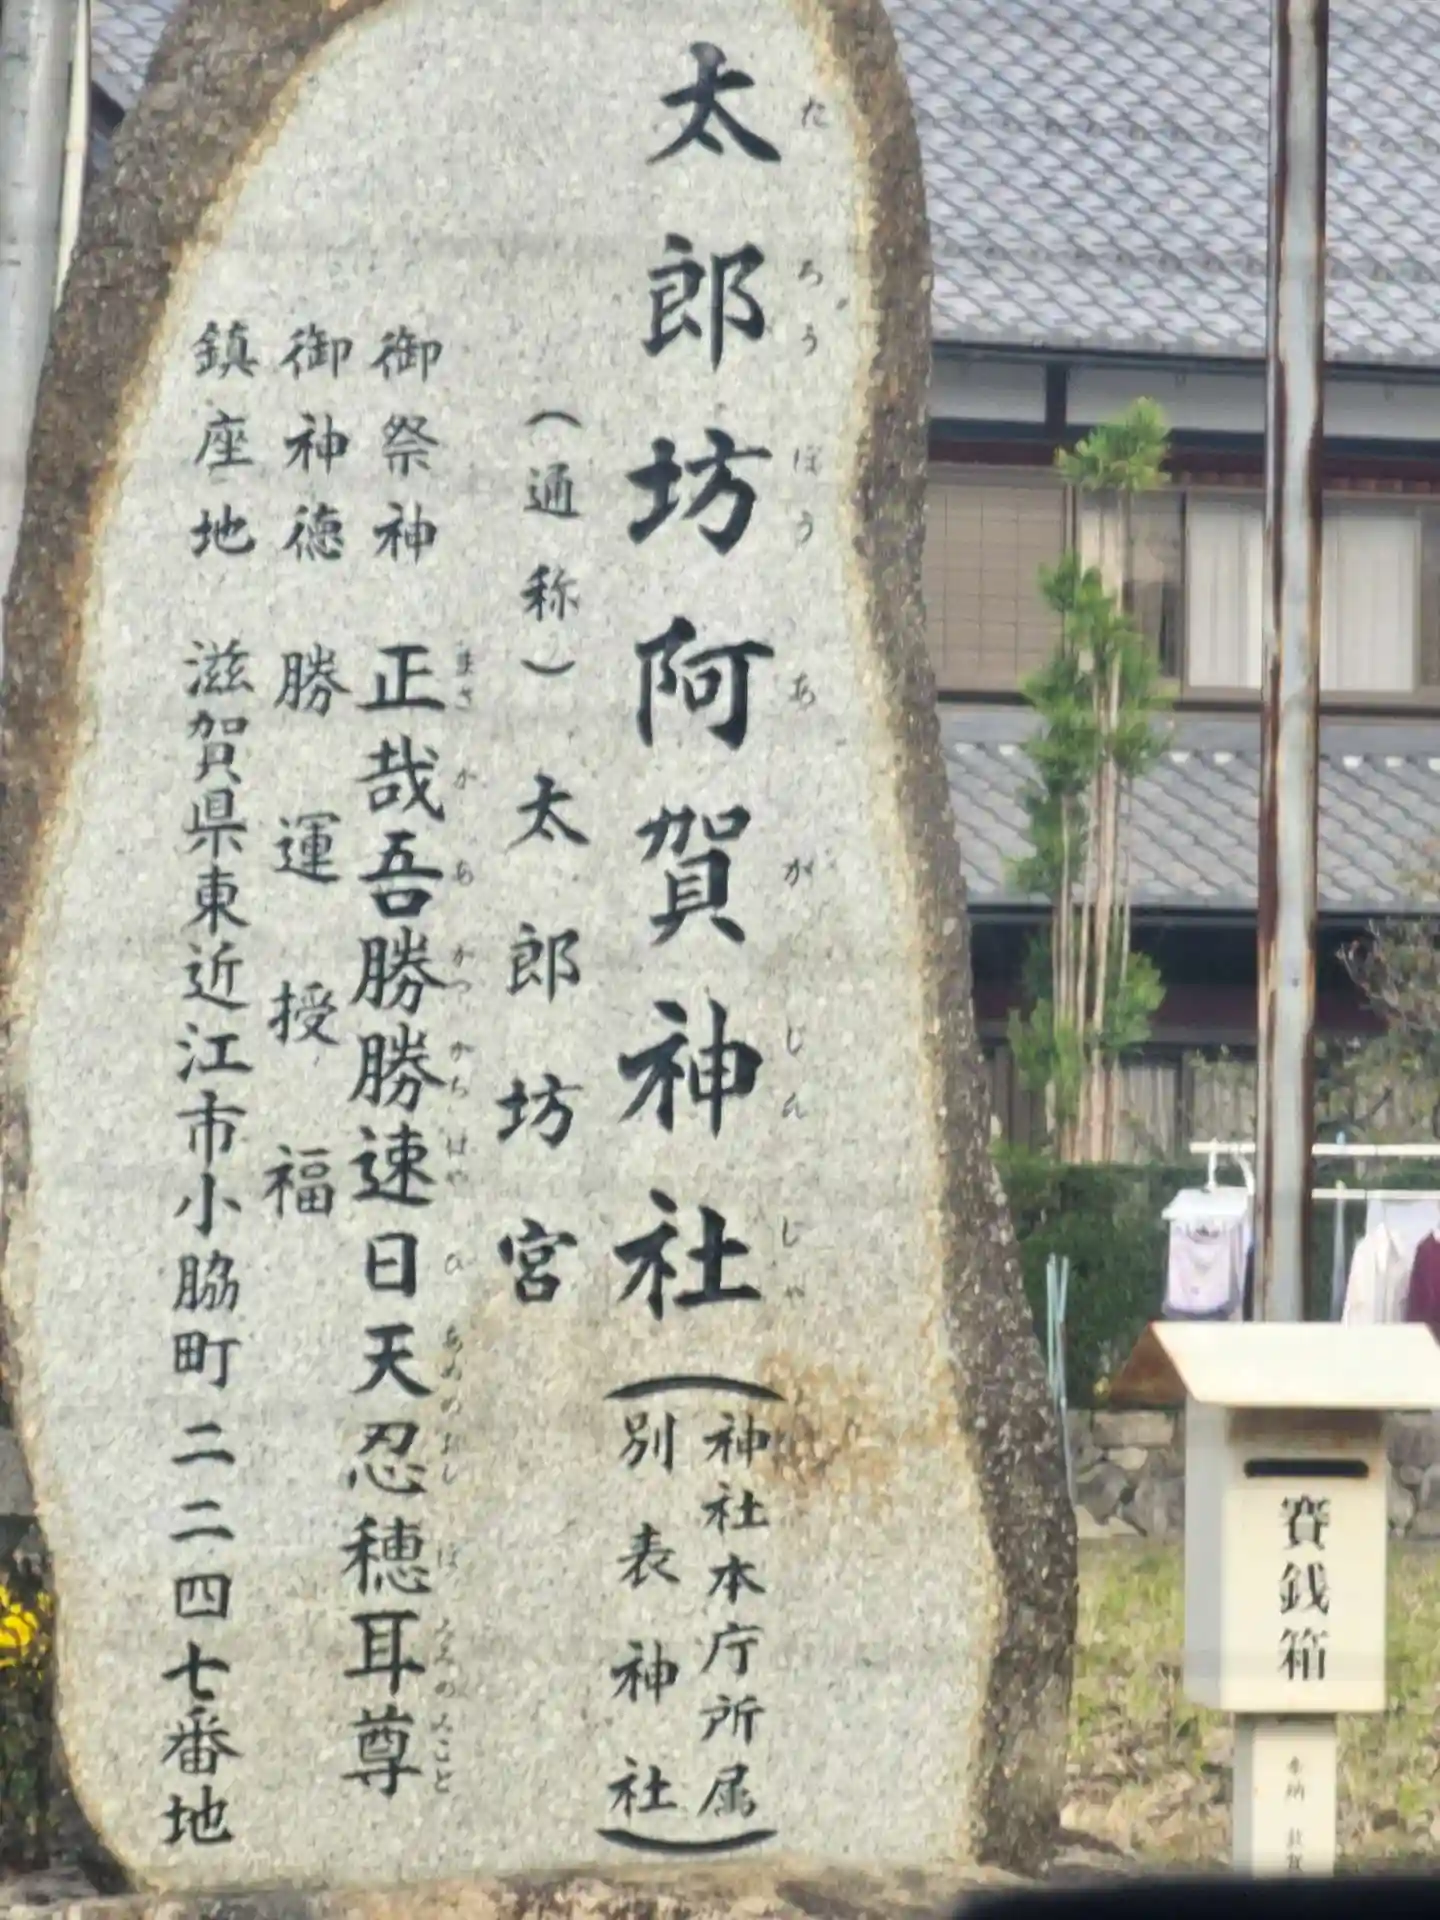 太郎坊阿賀神社
たろうぼうあがじんじゃ
（神社本庁所属
別表神社）
（通称）太郎坊宮
御祭神 正哉吾勝勝速日天忍穂耳尊
まさかあかつかちはやひあめのおしほみみのみこと
御神徳 勝運授福
鎮座地 滋賀県東近江市小脇町二二四七番地
賽銭箱
奉納